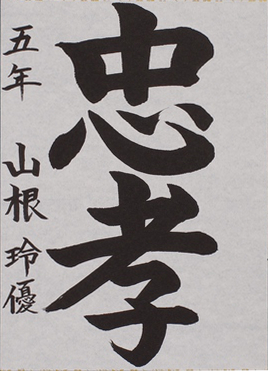 忠孝
五年 山根玲優